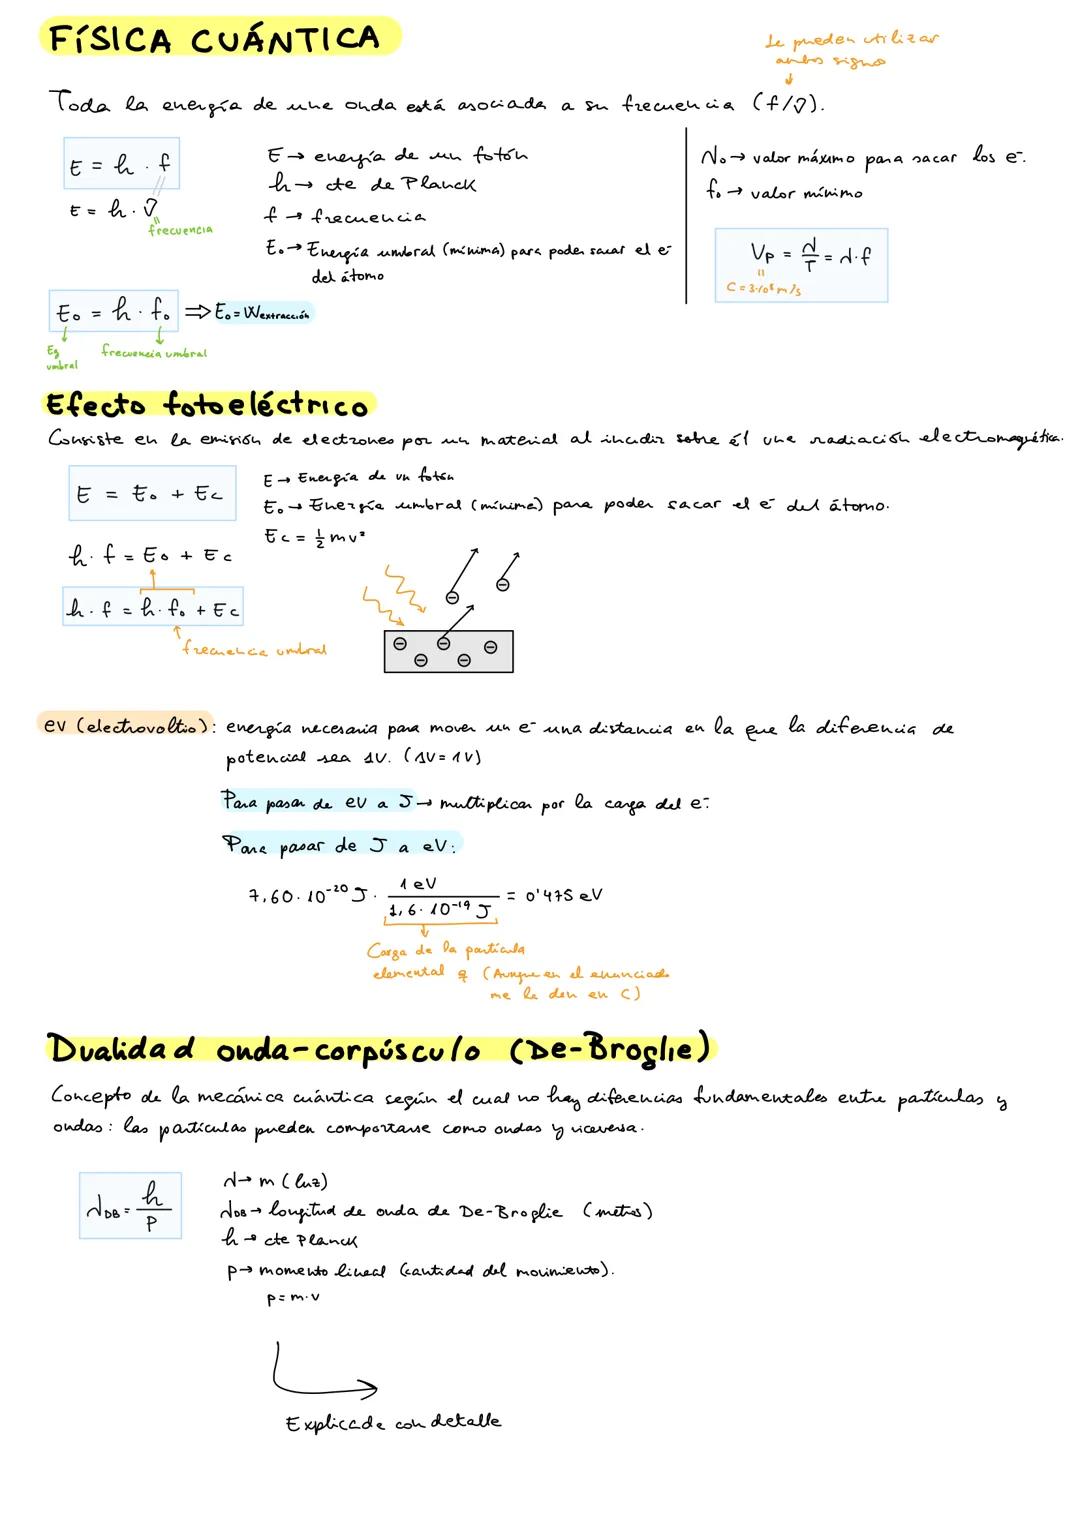 FÍSICA CUÁNTICA
Se pueden utilizar
ambos signo
Toda la energía de una onda está asociada a su frecuencia (f/ν).
E = h · f
E = h · ν
frecuencia
E → energía de un fotón
h → cte de Planck
f → frecuencia
E₀ → Energía umbral (mínima) para poder sacar el e⁻
del átomo
λ₀ → valor máximo para sacar los e⁻.
f₀ → valor mínimo
Vp = λ/T = λ·f
C = 3·10⁸ m/s
E₀ = h · f₀ ⇒ E₀ = Wextracción
Eg
umbral
frecuencia umbral
Efecto fotoeléctrico
Consiste en la emisión de electrones por un material al incidir sobre él una radiación electromagnética.
E = E₀ + Ec
E → Energía de un fotón
E₀ → Energía umbral (mínima) para poder sacar el e⁻ del átomo.
Ec = 1/2 mv²
h · f = E₀ + Ec
h · f = h · f₀ + Ec
frecuencia umbral
eV (electrovoltio): energía necesaria para mover un e⁻ una distancia en la que la diferencia de
potencial sea 1V. (ΔV = 1V)
Para pasar de eV a J → multiplicar por la carga del e⁻.
Para pasar de J a eV:
7,60 · 10⁻²⁰ J · 1 eV / 1,6 · 10⁻¹⁹ J = 0'475 eV
Carga de la partícula
elemental q (Aunque en el enunciado
me la den en C)
Dualidad onda-corpúsculo (De-Broglie)
Concepto de la mecánica cuántica según el cual no hay diferencias fundamentales entre partículas y
ondas: las partículas pueden comportarse como ondas y viceversa.
λDB = h/P
λ → m (luz)
λDB → longitud de onda de De-Broglie (metros)
h → cte Planck
p → momento lineal (cantidad del movimiento).
p = m·v
Explicada con detalle